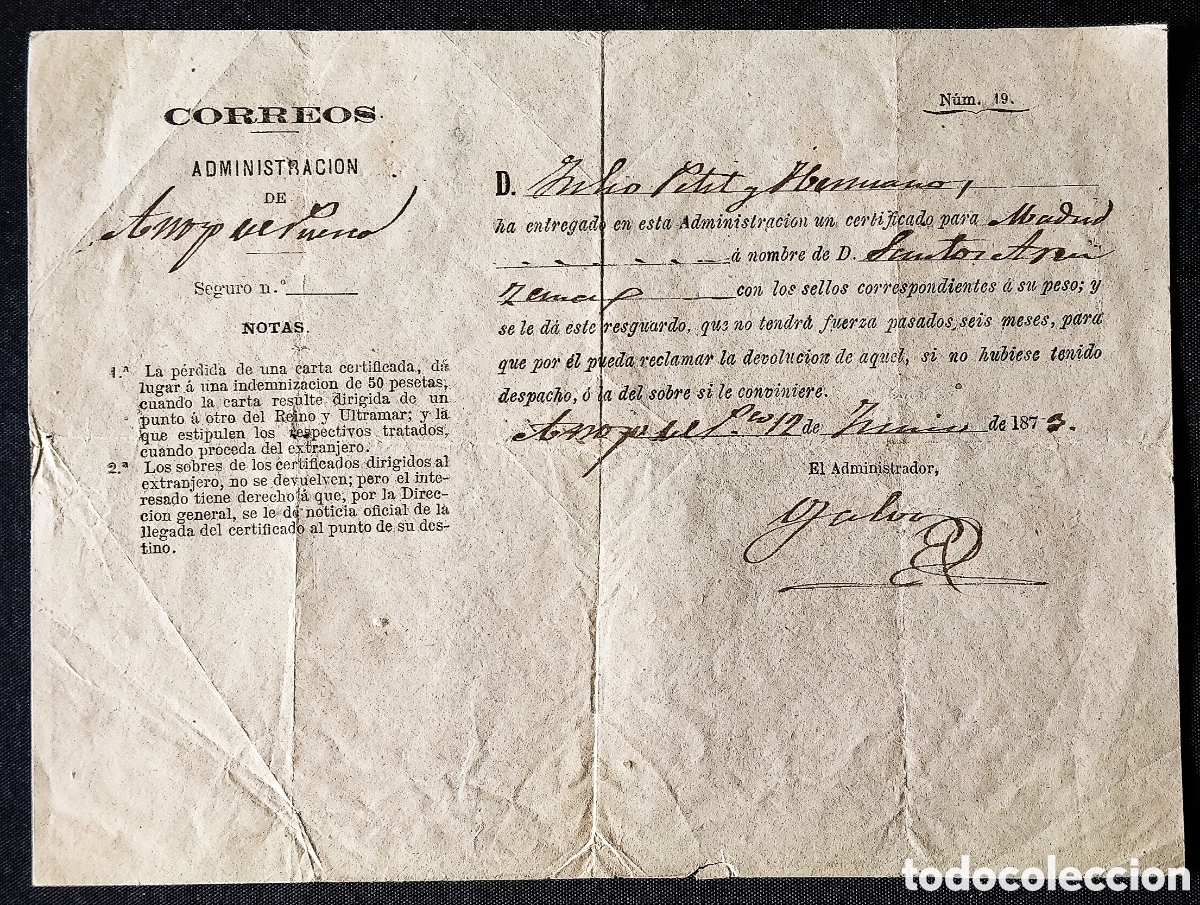 CORREOS
ADMINISTRACION
DE
Arroyo del Puerco
Seguro n.º
NOTAS.
1.ª La pérdida de una carta certificada, dá
lugar á una indemnizacion de 50 pesetas,
cuando la carta resulte dirigida de un
punto á otro del Reino y Ultramar; y la
que estipulen los respectivos tratados,
cuando proceda del extranjero.
2.ª Los sobres de los certificados dirigidos al
extranjero, no se devuelven; pero el inte-
resado tiene derecho á que, por la Direc-
cion general, se le dé noticia oficial de la
llegada del certificado al punto de su des-
tino.
Núm. 19.
D. Julio Petit y Hermano,
ha entregado en esta Administracion un certificado para Madrid
á nombre de D. Santos
con los sellos correspondientes á su peso; y
se le dá este resguardo, que no tendrá fuerza pasados seis meses, para
que por él pueda reclamar la devolucion de aquel, si no hubiese tenido
despacho, ó la del sobre si le conviniere.
Arroyo del P.co 12 de Junio de 1873.
El Administrador,
Galvan
todocoleccion